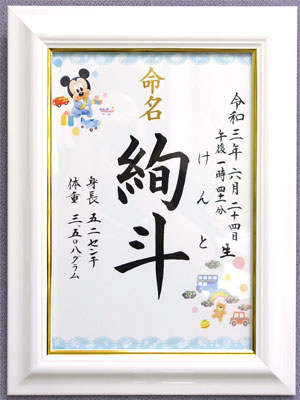 命名
令和三年六月二十四日
午後一時四十分 生
けんと
絢斗
身長 五二センチ
体重 三、五〇八グラム